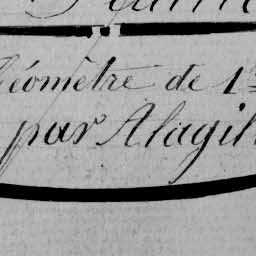 Géomètre de 1
par Alagil